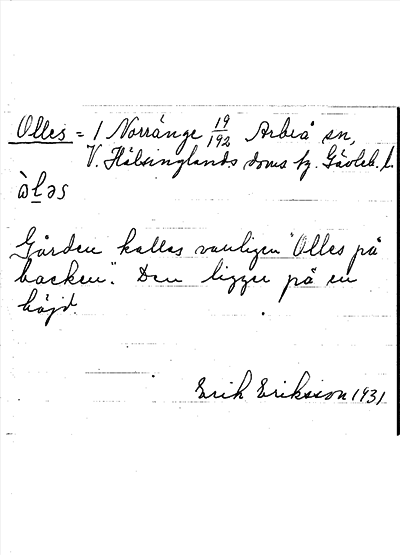 Olles = 1 Norränge 19/192 Arbrå sn,
V. Hälsinglands doms hg. Gävleb. l.
òl̲əs
Gården kallas vanligen "Olles på
backen". Den ligger på en
höjd.
Erik Eriksson 1931